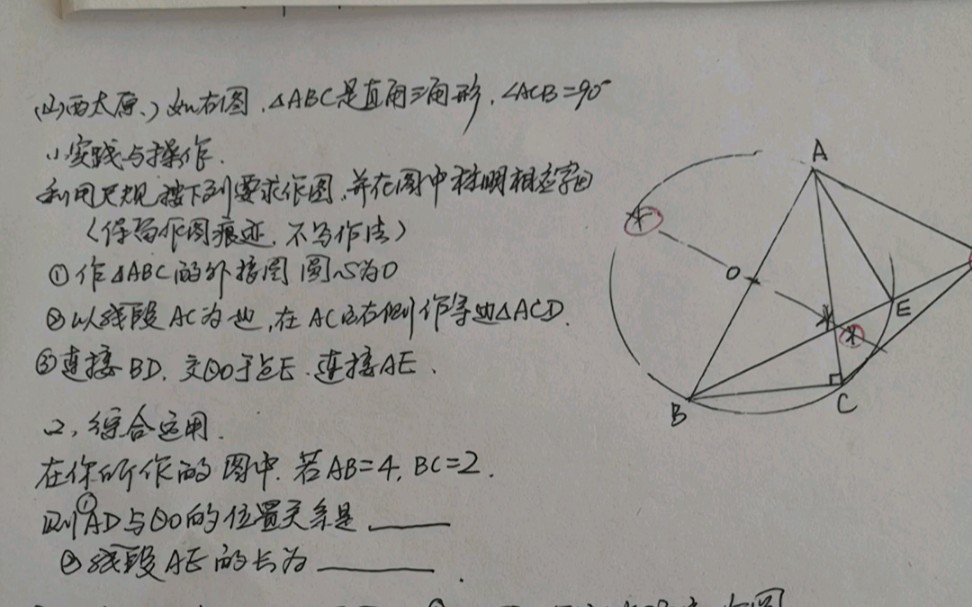 (山西太原.) 如右图. △ABC是直角三角形. ∠ACB=90°
(1)实践与操作.
利用尺规按下列要求作图.并在图中标明相应字母
(保留作图痕迹.不写作法)
①作△ABC的外接圆 圆心为O
②以线段AC为边,在AC的右侧作等边△ACD.
③连接BD. 交⊙O于点E. 连接AE.
(2)综合运用.
在你所作的图中. 若AB=4, BC=2.
则①AD与⊙O的位置关系是
②线段AE的长为
A
O
E
B
C